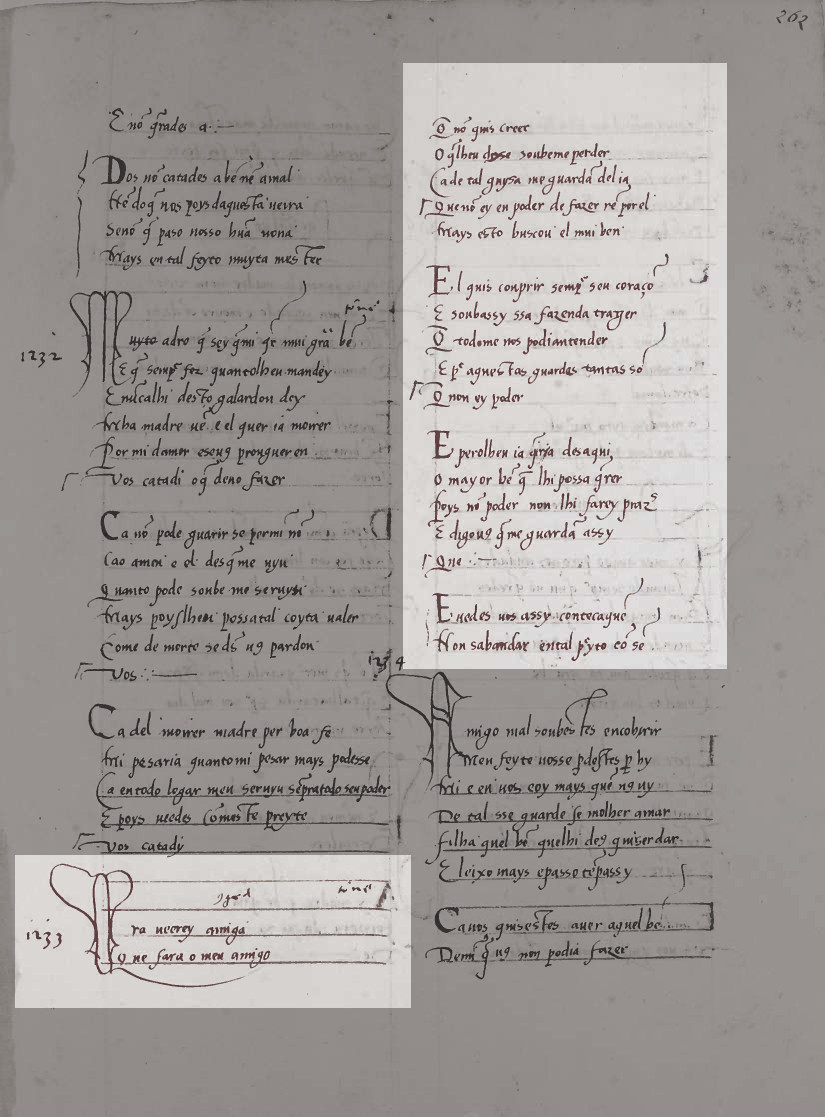 262
E nō q̄rades a
Dos nō catades a bē nē a mal
Nē do q̄ nos poys daquesta ueira
Senō q̄ paso uosso hūa uona
Mays en tal feyto muyta mester
1232
Muyto adro q̄ sey q̄mi q̄r mui grā bē
E q̄ semp̄ fez quanto lheu mandey
E nūcalhi desto galardon dey
Mha madre uē e el quer ia moirer
Por mi damor e seu9 prouguer en
Vos catadi o q̄ deuo fazer
Ca nō pode guarir se per mi nō
Ca o amei e el des q̄ me uyu
Quanto pode soube me seruyr
Mays poys lheu possa tal coyta ualer
Come de morte se d̄s u9 pardon
Vos
Ca del moirer madre per boa fe
Mi pesaria quanto mi pesar mays podesse
Ca en todo logar meu seruyu sē pra todo seu poder
E poys uedes Comeste preyte
Vos catady
1233
Ora ueerey amiga
Que fara o meu amigo
Q̄ nō quis creer
O q̄lheu dixe soubeme perder
Ca de tal guysa me guardā del ia
Que nō ey en poder de fazer rē por el
Mays esto buscou el mui ben
3
El quis conprir semp̄ seu coraçō
E soub assy ssa fazenda trager
Q̄ todome nos podia ntender
E p̄ aquestas guardas tantas sō
Q̄ non ey poder
E pero lheu ia q̄ria desaqui
o mayor bē q̄ lhi possa q̄rer
poys nō poder non lhi farey praz̄
E digou9 q̄me guardā assy
Que
E uedes uos assy contecaquē
Non sabandar en tal p̄yto cō sē
1234
Amigo mal soubestes encobrir
Meu feyto uosse perdestes per hy
Mi e eu uos e oy mays quē n9 uy
De tal sse guarde se molher amar
filha quel bē quelhi de9 quiser dar
E leixo mays e passo tēpassy
Ca uos quisestes auer aquel bē
Demi q̄ u9 non podia fazer